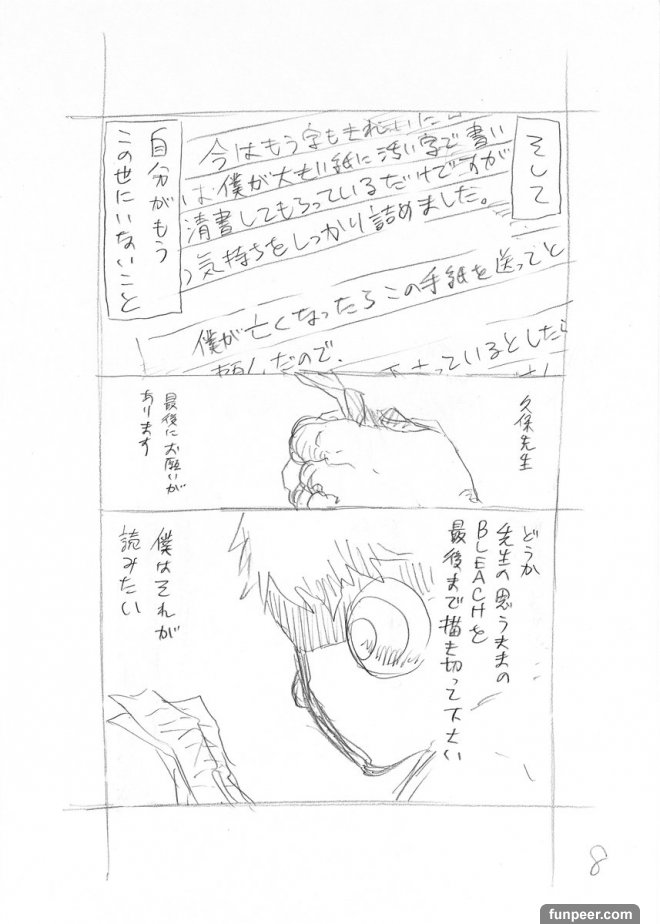 そして
今はもう字もきれいに
は僕が大きい紙に汚い字で書い
清書してもらっているだけですが
気持ちをしっかり詰めました。
僕が亡くなったらこの手紙を送ってと
頼んだので、
下さっているとしたら
自分がもう
この世にいないこと
久保先生
最後にお願いが
あります
どうか
先生の思うままの
BLEACHを
最後まで描き切って下さい
僕はそれが
読みたい
8
funpeer.com